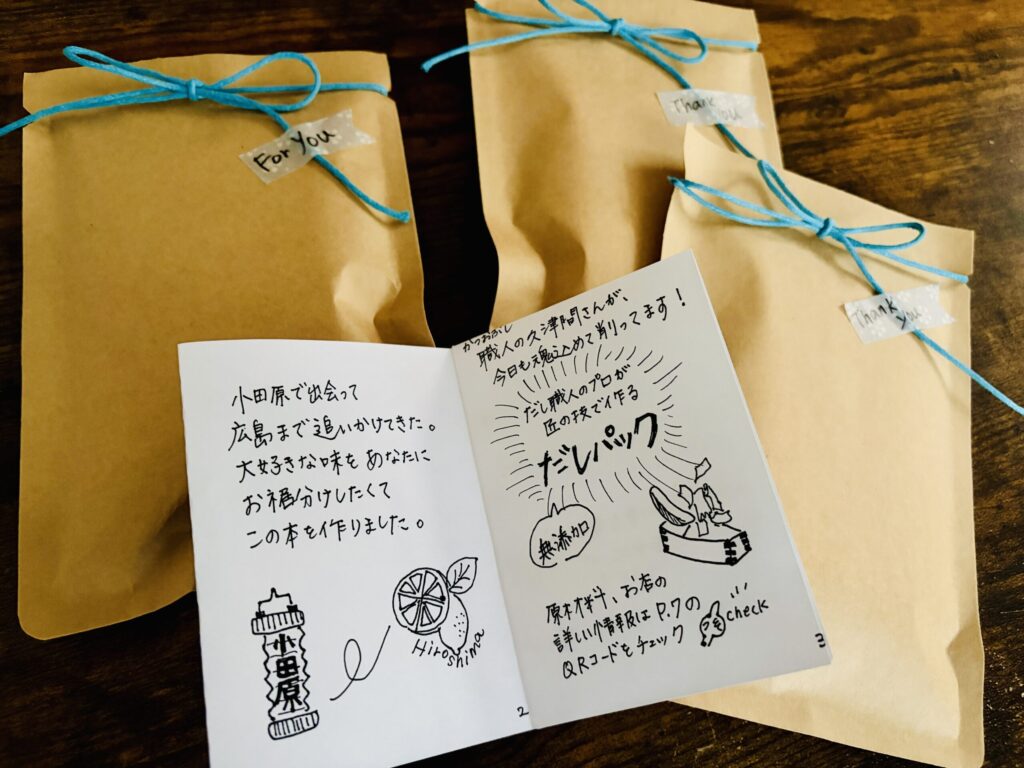 For You
Thank You
Thank You
小田原で出会って
広島まで追いかけてきた。
大好きな味をあなたに
お福分けしたくて
この本を作りました。
小田原
Hiroshima
2
かつおぶし
職人の久津間さんが、
今日も魂込めて削ってます!
だし職人のプロが
匠の技で作る
だしパック
無添加
原材料、お店の
詳しい情報はP.7の
QRコードをチェック
check
3